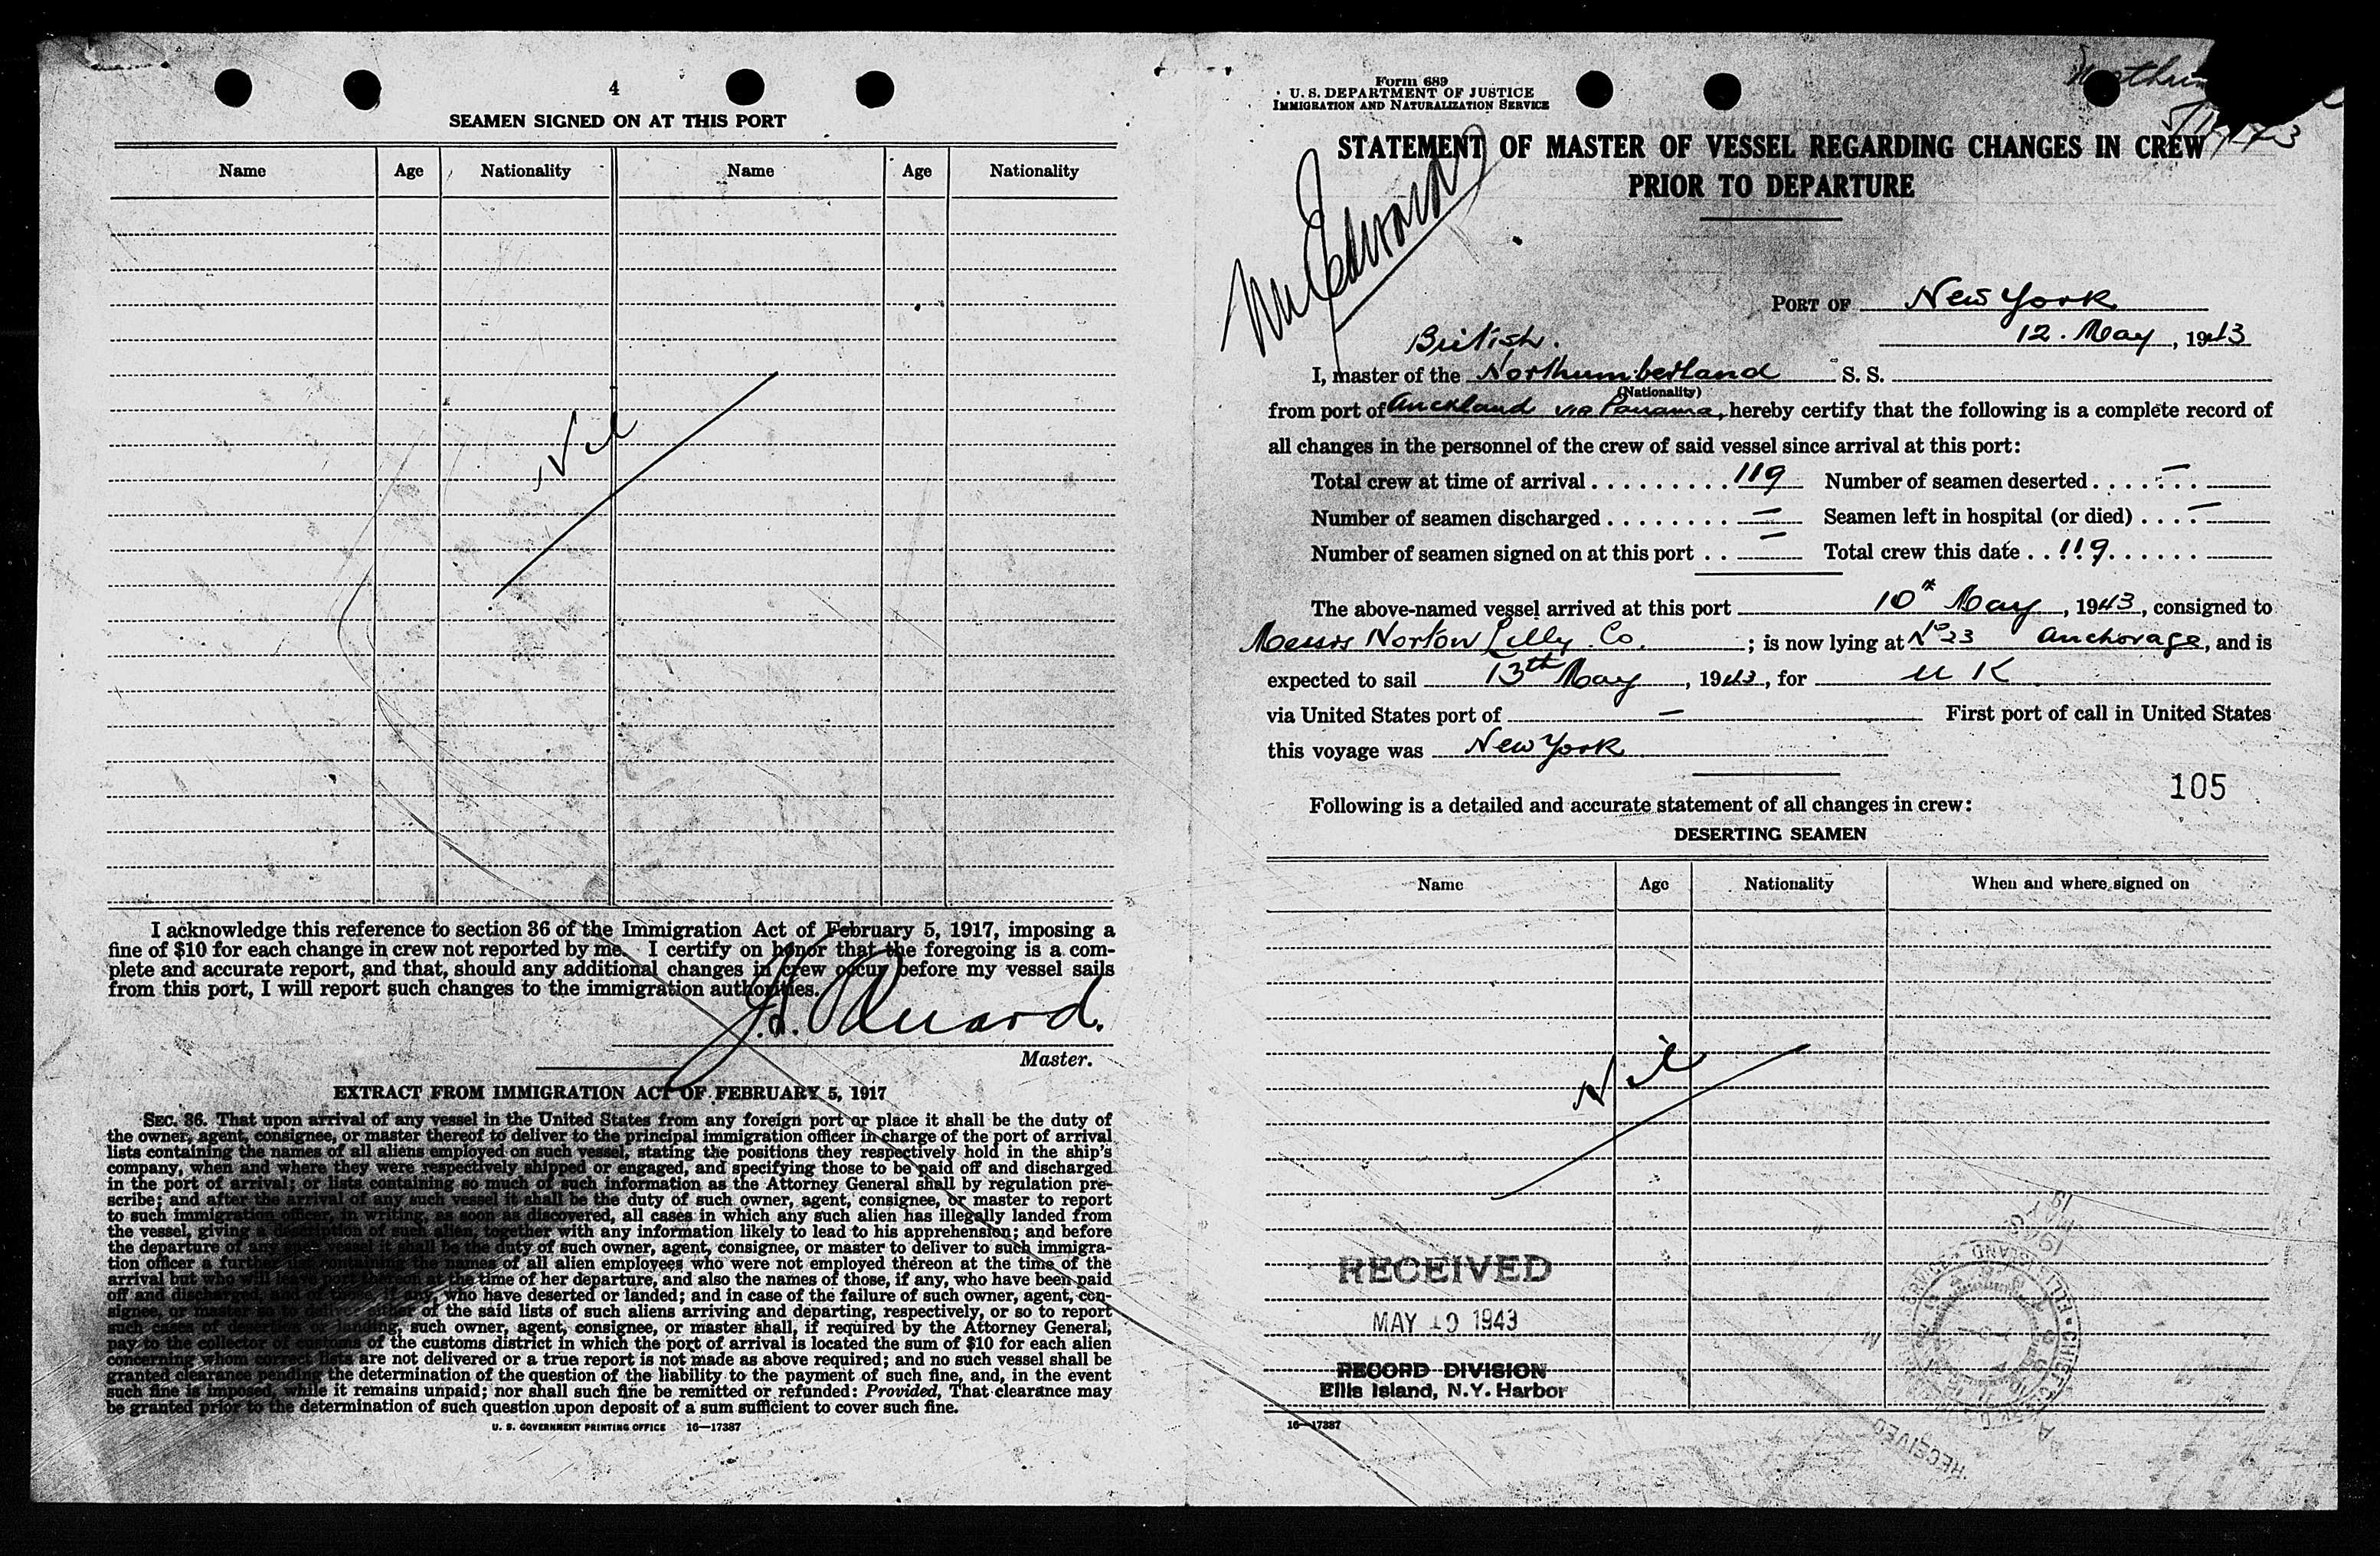 4
SEAMEN SIGNED ON AT THIS PORT
Name Age Nationality Name Age Nationality
Nil
I acknowledge this reference to section 36 of the Immigration Act of February 5, 1917, imposing a
fine of $10 for each change in crew not reported by me. I certify on honor that the foregoing is a com-
plete and accurate report, and that, should any additional changes in crew occur before my vessel sails
from this port, I will report such changes to the immigration authorities.
Master.
EXTRACT FROM IMMIGRATION ACT OF FEBRUARY 5, 1917
SEC. 36. That upon arrival of any vessel in the United States from any foreign port or place it shall be the duty of
the owner, agent, consignee, or master thereof to deliver to the principal immigration officer in charge of the port of arrival
lists containing the names of all aliens employed on such vessel, stating the positions they respectively hold in the ship's
company, when and where they were respectively shipped or engaged, and specifying those to be paid off and discharged
in the port of arrival; or lists containing so much of such information as the Attorney General shall by regulation pre-
scribe; and after the arrival of any such vessel it shall be the duty of such owner, agent, consignee, or master to report
to such immigration officer, in writing, as soon as discovered, all cases in which any such alien has illegally landed from
the vessel, giving a description of such alien, together with any information likely to lead to his apprehension; and before
the departure of any such vessel it shall be the duty of such owner, agent, consignee, or master to deliver to such immigra-
tion officer a further list containing the names of all alien employees who were not employed thereon at the time of the
arrival but who will leave port thereon at the time of her departure, and also the names of those, if any, who have been paid
off and discharged, and of those, if any, who have deserted or landed; and in case of the failure of such owner, agent, con-
signee, or master so to deliver either of the said lists of such aliens arriving and departing, respectively, or so to report
such cases of desertion or landing, such owner, agent, consignee, or master shall, if required by the Attorney General,
pay to the collector of customs of the customs district in which the port of arrival is located the sum of $10 for each alien
concerning whom correct lists are not delivered or a true report is not made as above required; and no such vessel shall be
granted clearance pending the determination of the question of the liability to the payment of such fine, and, in the event
such fine is imposed, while it remains unpaid; nor shall such fine be remitted or refunded: Provided, That clearance may
be granted prior to the determination of such question upon deposit of a sum sufficient to cover such fine.
U. S. GOVERNMENT PRINTING OFFICE 16—17387
Form 689
U. S. DEPARTMENT OF JUSTICE
IMMIGRATION AND NATURALIZATION SERVICE
STATEMENT OF MASTER OF VESSEL REGARDING CHANGES IN CREW
PRIOR TO DEPARTURE
Edwards
PORT OF New York
12. May, 1943
British.
I, master of the Northumberland S. S.
(Nationality)
from port of Auckland via Panama, hereby certify that the following is a complete record of
all changes in the personnel of the crew of said vessel since arrival at this port:
Total crew at time of arrival . . . . . . . . . 119 Number of seamen deserted . . . . . . . —
Number of seamen discharged . . . . . . . . — Seamen left in hospital (or died) . . . . —
Number of seamen signed on at this port . . — Total crew this date . . 119 . . . . . .
The above-named vessel arrived at this port 10th May, 1943, consigned to
Messrs Norton Lilly Co.; is now lying at No 23 Anchorage, and is
expected to sail 13th May, 1943, for U K
via United States port of — First port of call in United States
this voyage was New York
105
Following is a detailed and accurate statement of all changes in crew:
DESERTING SEAMEN
Name Age Nationality When and where signed on
Nil
RECEIVED
MAY 19 1943
RECORD DIVISION
Ellis Island, N.Y. Harbor
16—17387
RECEIVED